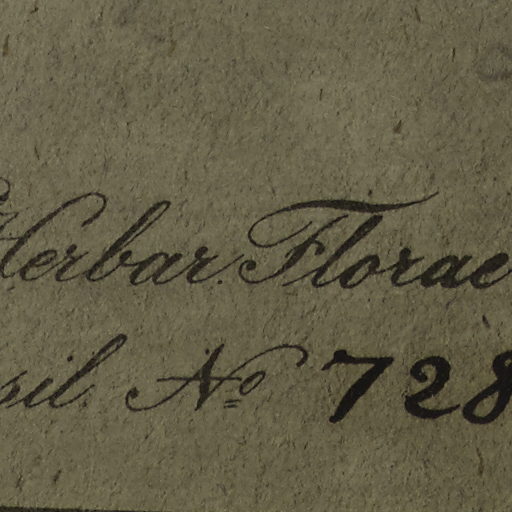 Herbar. Florae
sil. No 728